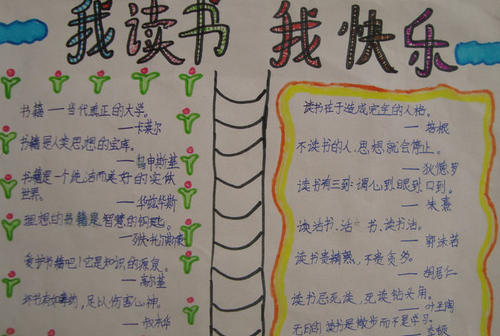 我读书 我快乐
书籍——当代真正的大学。
——卡莱尔
书籍是人类思想的宝库。
——乌申斯基
书籍是一个纯洁而美好的实体
世界。
——华兹华斯
理想的书籍是智慧的钥匙。
——列夫·托尔斯泰
爱护书籍吧!它是知识的源泉。
——高尔基
坏书有如毒药,足以伤害心神。
——叔本华
读书在于造成完全的人格。
——培根
不读书的人,思想就会停止。
——狄德罗
读书有三到:谓心到眼到口到。
——朱熹
读活书,活 书,读书活。
——郭沫若
读书贵精熟,不贵贪多。
——胡居仁
读书忌死读,死读钻头角。
——叶圣陶
无目的读书是散步而不是学习。